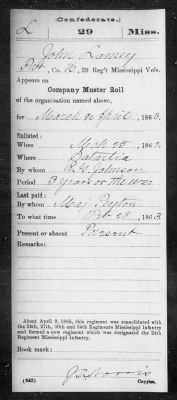 (Confederate.)
L 29 Miss.
John Lamey
Pvt, Co. K, 29 Reg't Mississippi Vols.
Appears on
Company Muster Roll
of the organization named above,
for March & April, 1863.
Enlisted:
When Mch 25, 1862.
Where Satartia
By whom Johnson
Period 3 years or the war
Last paid:
By whom Maj Peyton
To what time Feb 28, 1863.
Present or absent Present
Remarks:
About April 9, 1865, this regiment was consolidated with the 24th, 27th, 30th and 34th Regiments Mississippi Infantry and formed a new regiment which was designated the 24th Regiment Mississippi Infantry.
Book mark:
(642) Morris
Copyist.